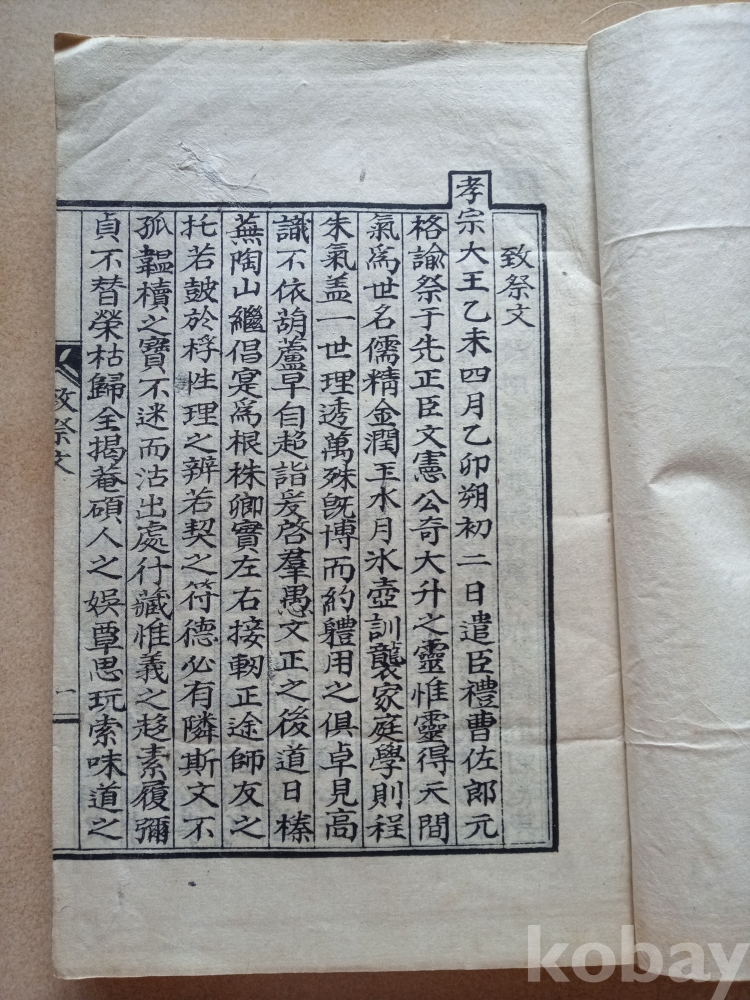 致祭文
孝宗大王乙未四月乙卯朔初二日遣臣禮曹佐郎元
格諭祭于先正臣文憲公奇大升之靈惟靈得天間
氣爲世名儒精金潤玉水月氷壺訓襲家庭學則程
朱氣盖一世理透萬殊旣博而約軆用之俱卓見高
識不依葫蘆早自超詣爰啓羣愚文正之後道日榛
蕪陶山繼倡寔爲根株卿實左右接軔正途師友之
托若皷於桴性理之辨若契之符德必有隣斯文不
孤韞櫝之寶不迷而沽出處行藏惟義之趍素履彌
貞不替榮枯歸全揭菴碩人之娛覃思玩索味道之
致祭文
一
kobay